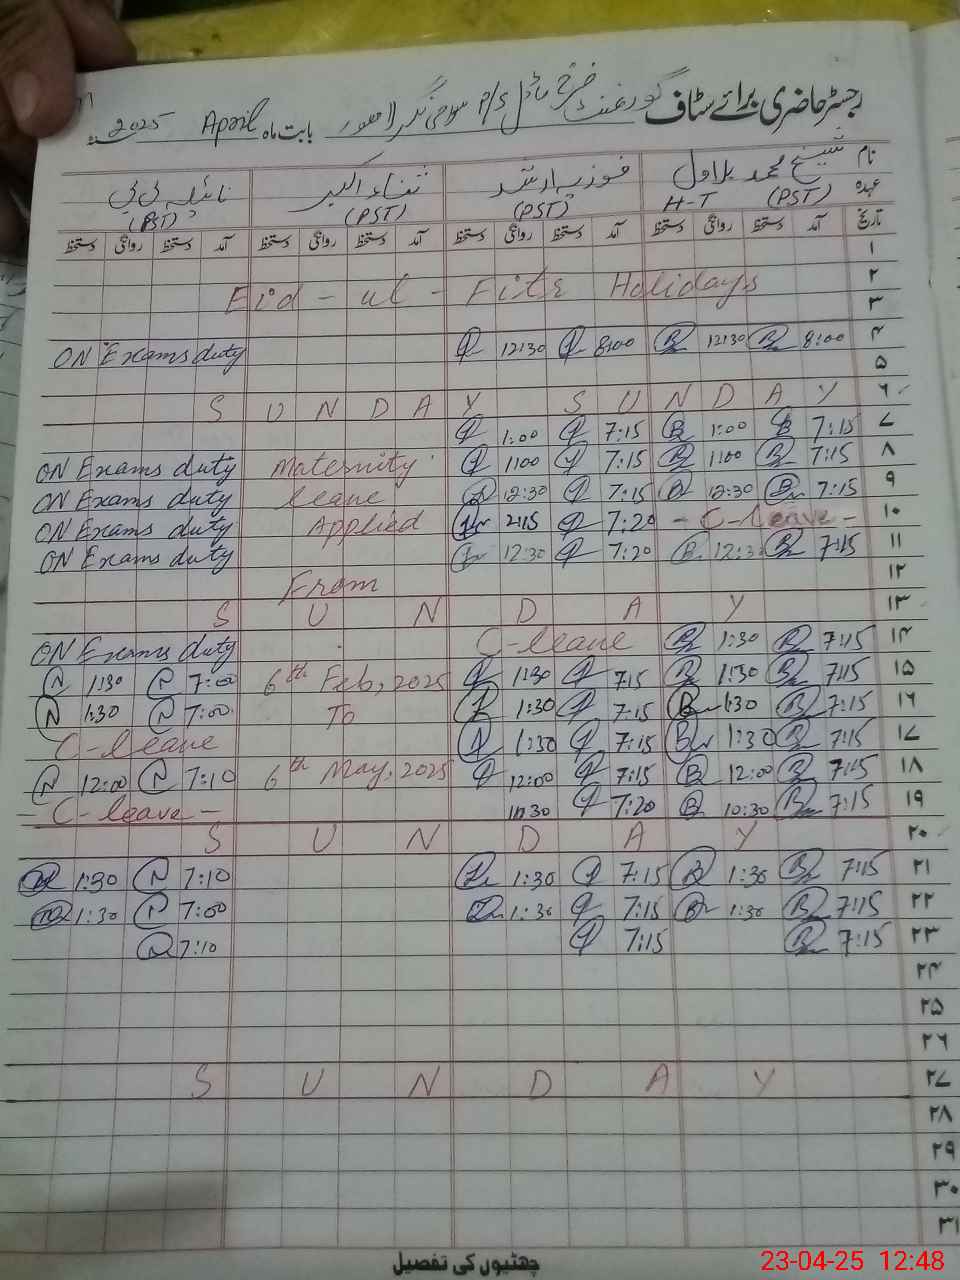 رجسٹر حاضری برائے سٹاف گورنمنٹ P/S بابت ماہ April 2025
نام شیخ محمد بلاول فوزیہ ارشد ثناء اکبر نائلہ بی بی
عہدہ H-T (PST) (PST) (PST) (PST)
تاریخ آمد دستخط روانگی دستخط آمد دستخط روانگی دستخط آمد دستخط روانگی دستخط آمد دستخط روانگی دستخط
۱
۲
Eid - ul - Fitr Holidays
۳
ON Exams duty 12:30 8:00 12:30 8:00 ۴
۵
S U N D A Y S U N D A Y ۶
1:00 7:15 1:00 7:15 ۷
ON Exams duty Maternity 1:00 7:15 1:00 7:15 ۸
ON Exams duty leave 12:30 7:15 12:30 7:15 ۹
ON Exams duty Applied 2:15 7:20 - C-leave - ۱۰
ON Exams duty 12:30 7:20 12:30 7:15 ۱۱
From ۱۲
S U N D A Y ۱۳
ON Exams duty C-leave 1:30 7:15 ۱۴
1:30 7:00 6th Feb, 2025 1:30 7:15 1:30 7:15 ۱۵
1:30 7:00 To 1:30 7:15 1:30 7:15 ۱۶
C-leave 1:30 7:15 1:30 7:15 ۱۷
12:00 7:10 6th May, 2025 12:00 7:15 12:00 7:15 ۱۸
- C-leave - 10:30 7:20 10:30 7:15 ۱۹
S U N D A Y ۲۰
1:30 7:10 1:30 7:15 1:30 7:15 ۲۱
1:30 7:00 1:30 7:15 1:30 7:15 ۲۲
7:10 7:15 7:15 ۲۳
۲۴
۲۵
۲۶
S U N D A Y ۲۷
۲۸
۲۹
۳۰
۳۱
چھٹیوں کی تفصیل
23-04-25 12:48